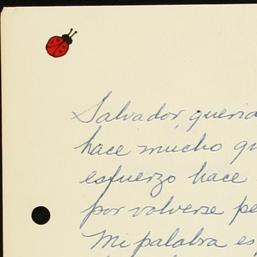 Salvador, querid
hace mucho qu
esfuerzo hace
por volverse pe
Mi palabra es